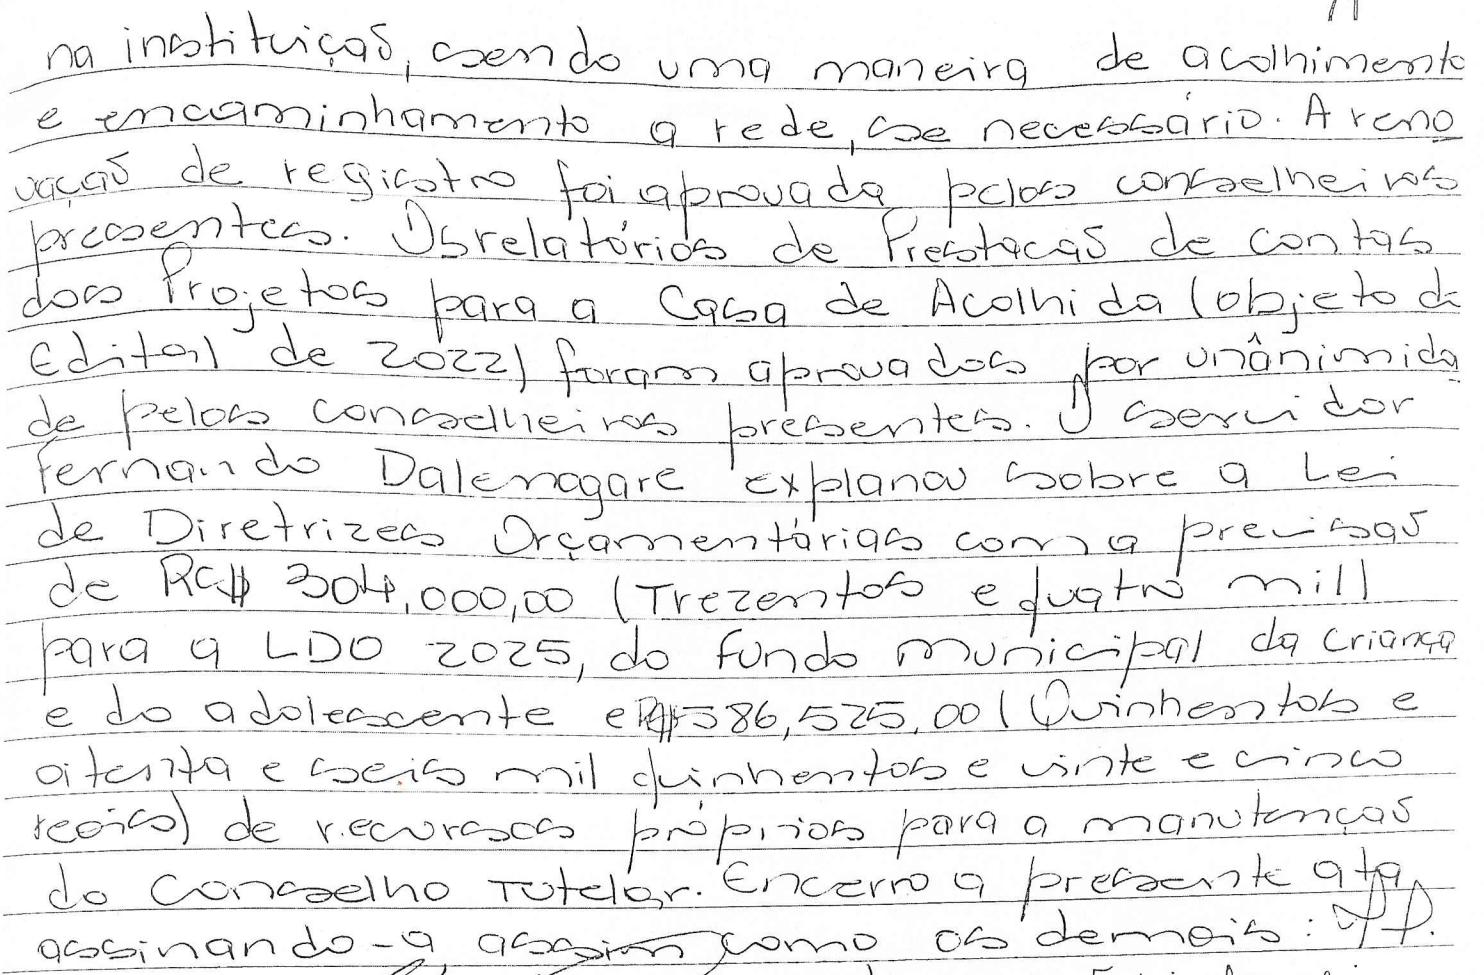 na instituição, sendo uma maneira de acolhimento
e encaminhamento a rede, se necessário. A reno
vação de registro foi aprovada pelos conselheiros
presentes. Os relatórios de Prestação de contas
dos Projetos para a Casa de Acolhida (objeto do
Edital de 2022) foram aprovados por unânimida
de pelos conselheiros presentes. O servidor
Fernando Dalenogare explanou sobre a Lei
de Diretrizes Orçamentárias com a previsão
de R$ 304.000,00 (Trezentos e quatro mil)
para a LDO 2025, do Fundo municipal da criança
e do adolescente e R$ 586,525,00 (Quinhentos e
oitenta e seis mil quinhentos e vinte e cinco
reais) de recursos próprios para a manutenção
do Conselho Tutelar. Encerro a presente ata,
assinando-a, assim como os demais: